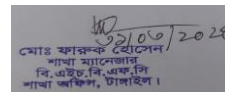 মোঃ ফারুক হোসেন
শাখা ম্যানেজার
বি.এইচ.বি.এফ.সি
শাখা অফিস, টাঙ্গাইল।